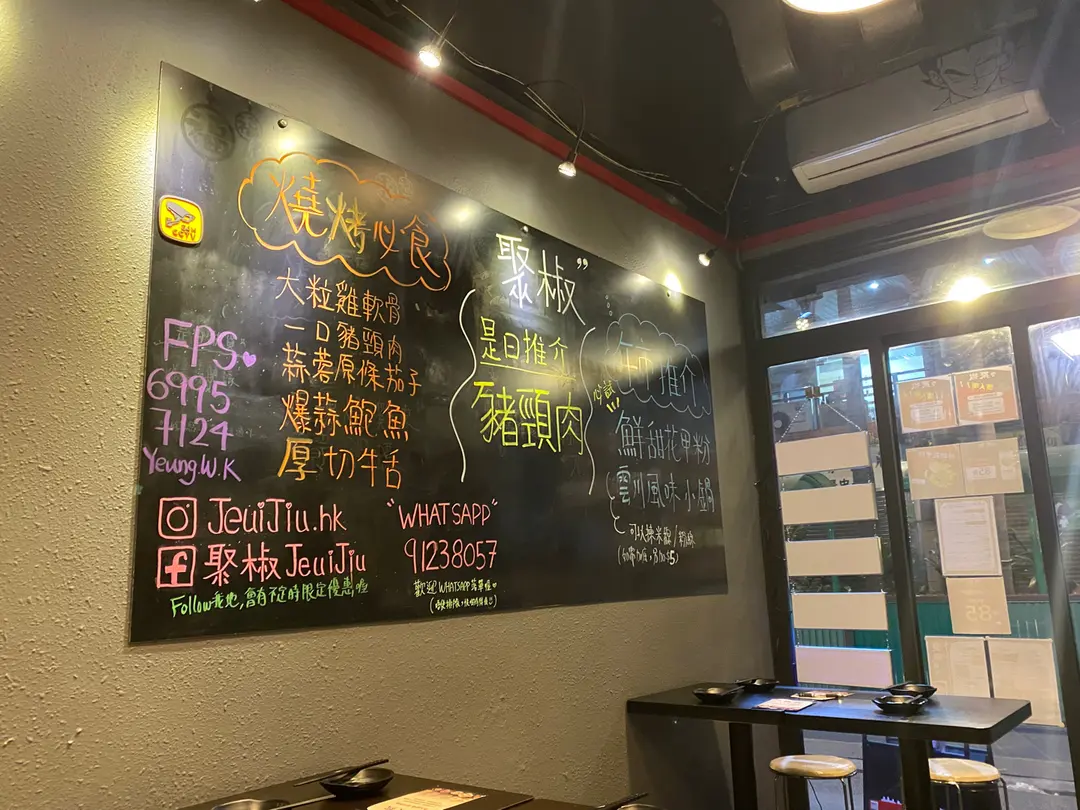 24H
CCTV
燒烤必食
大粒雞軟骨
一口豬頸肉
蒜蓉原條茄子
爆蒜鮑魚
厚切牛舌
FPS
6995
7124
Yeung.W.K
JeuiJiu.hk
聚椒JeuiJiu
Follow我地,會有不定時限定優惠喔
"WHATSAPP"
91238057
歡迎WHATSAPP落單喔
聚椒"
是日推介
豬頸肉
必試
推介
鮮甜花甲粉
雲川風味小鍋
可以辣米線/粉絲